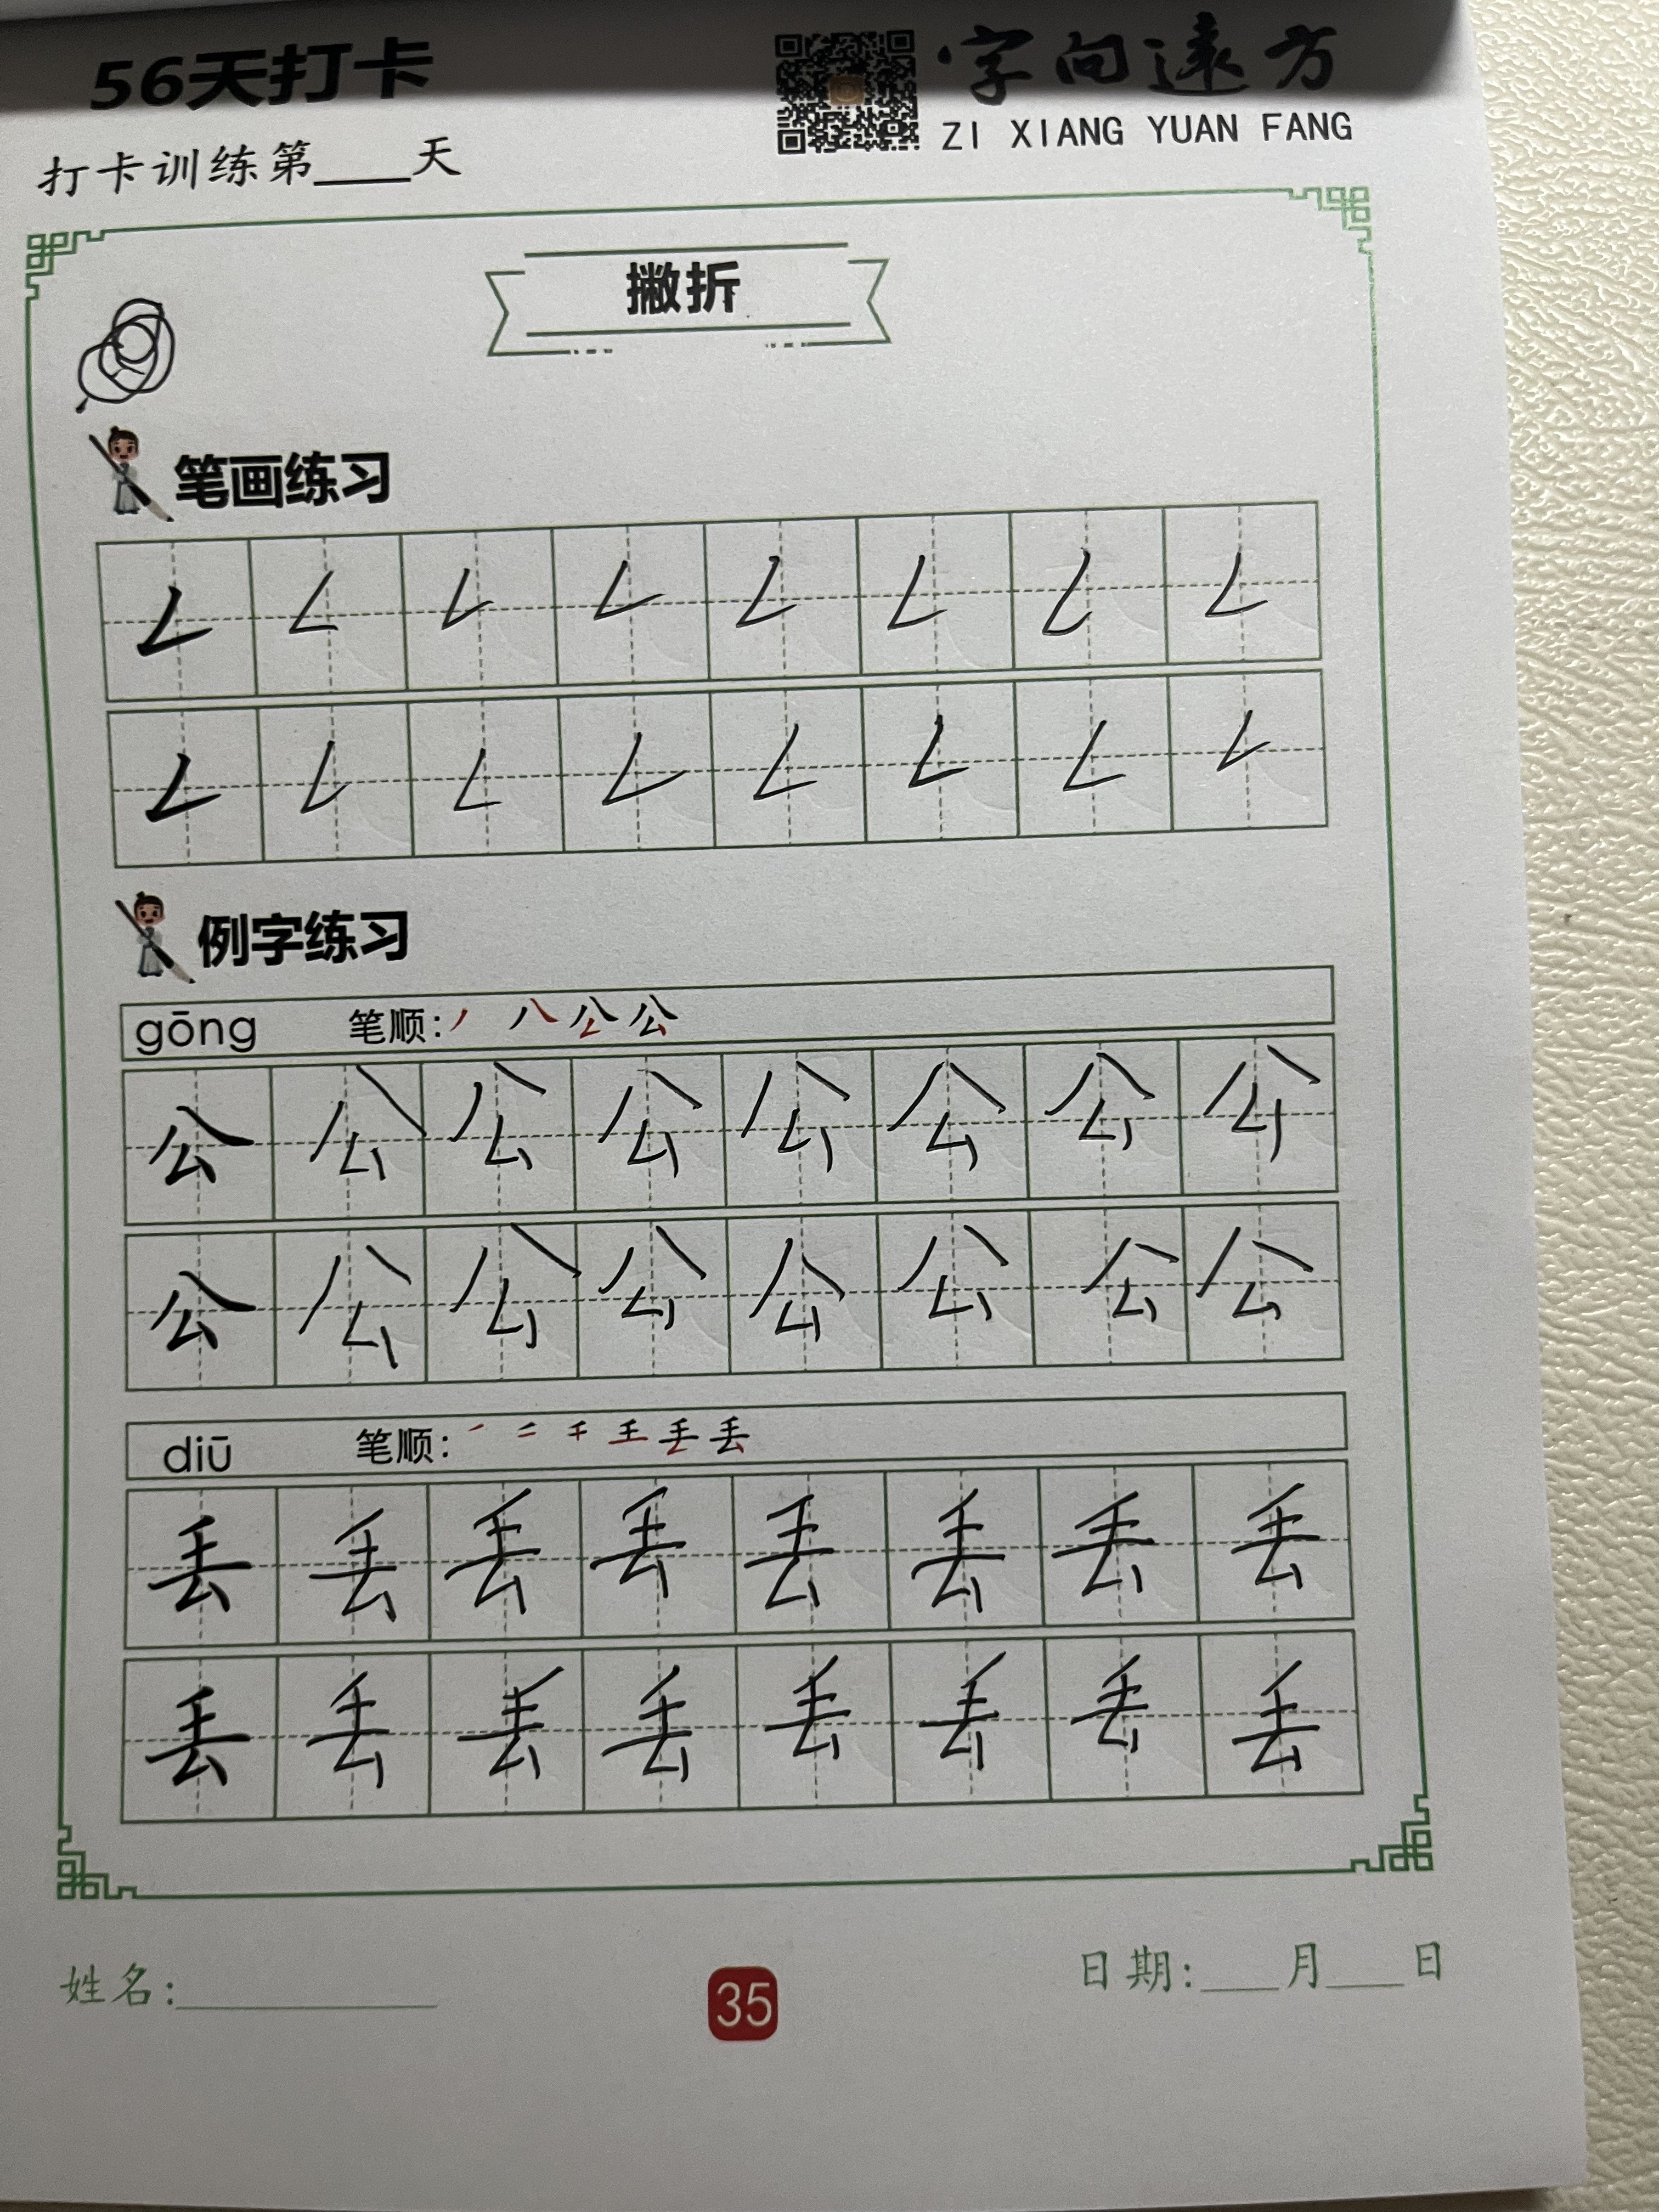 56天打卡
字向远方
ZI XIANG YUAN FANG
打卡训练第____天
撇折
笔画练习
𠃋 𠃋 𠃋 𠃋 𠃋 𠃋 𠃋 𠃋
𠃋 𠃋 𠃋 𠃋 𠃋 𠃋 𠃋 𠃋
例字练习
gōng 笔顺:丿 八 公 公
公 公 公 公 公 公 公 公
公 公 公 公 公 公 公 公
diū 笔顺: 丢
丢 丢 丢 丢 丢 丢 丢 丢
丢 丢 丢 丢 丢 丢 丢 丢
姓名:__________
35
日期:___月___日